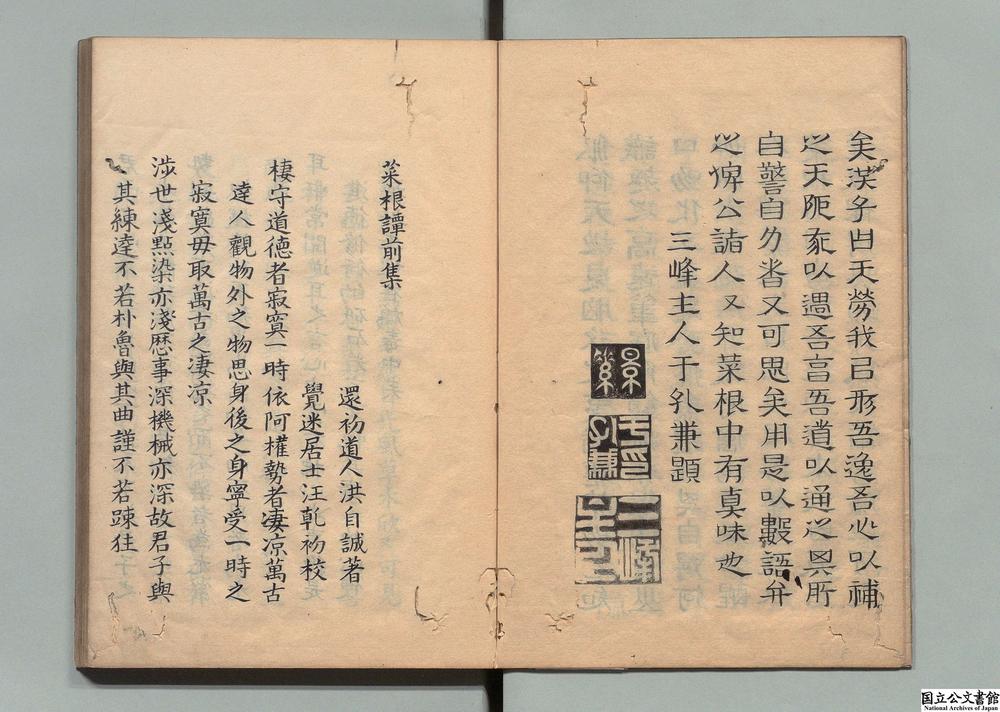 矣洪子曰天勞我以形吾逸吾心以補
之天阨我以遇吾高吾道以通之其所
自警自力者又可思矣用是以數語弁
之俾公諸人人知菜根中有真味也
三峰主人于孔兼題
景素
菜根譚前集
還初道人洪自誠著
覺迷居士汪乾初校
棲守道德者寂寞一時依阿權勢者凄凉萬古
達人觀物外之物思身後之身寧受一時之
寂寞毋取萬古之凄凉
涉世淺點染亦淺歷事深機械亦深故君子與
其練達不若朴魯與其曲謹不若踈狂
国立公文書館
National Archives of Japan